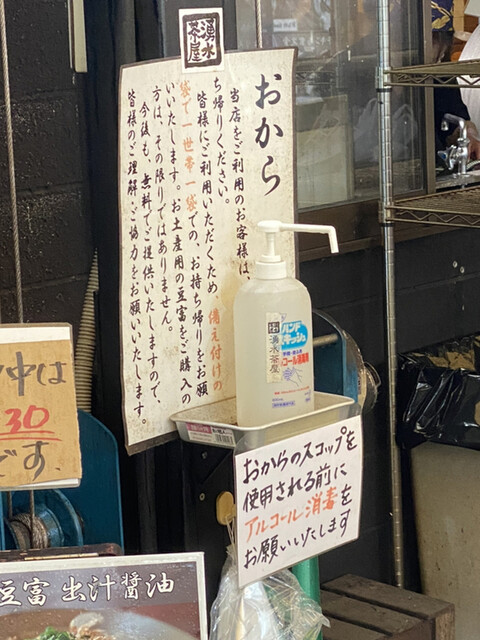 湧水
茶屋
おから
当店をご利用のお客様は、
ち帰りください。
皆様にご利用いただくため、備え付けの
袋で一世帯一袋での、お持ち帰りをお願
いいたします。お土産用の豆富をご購入の
方は、その限りではありません。
今後も、無料でご提供いたしますので、
皆様のご理解・ご協力をお願いいたします。
ハンド
スキッシュ
湧水茶屋
おからのスコップを
使用される前に
アルコール消毒を
お願いいたします
中は
30
です。
豆富 出汁醤油